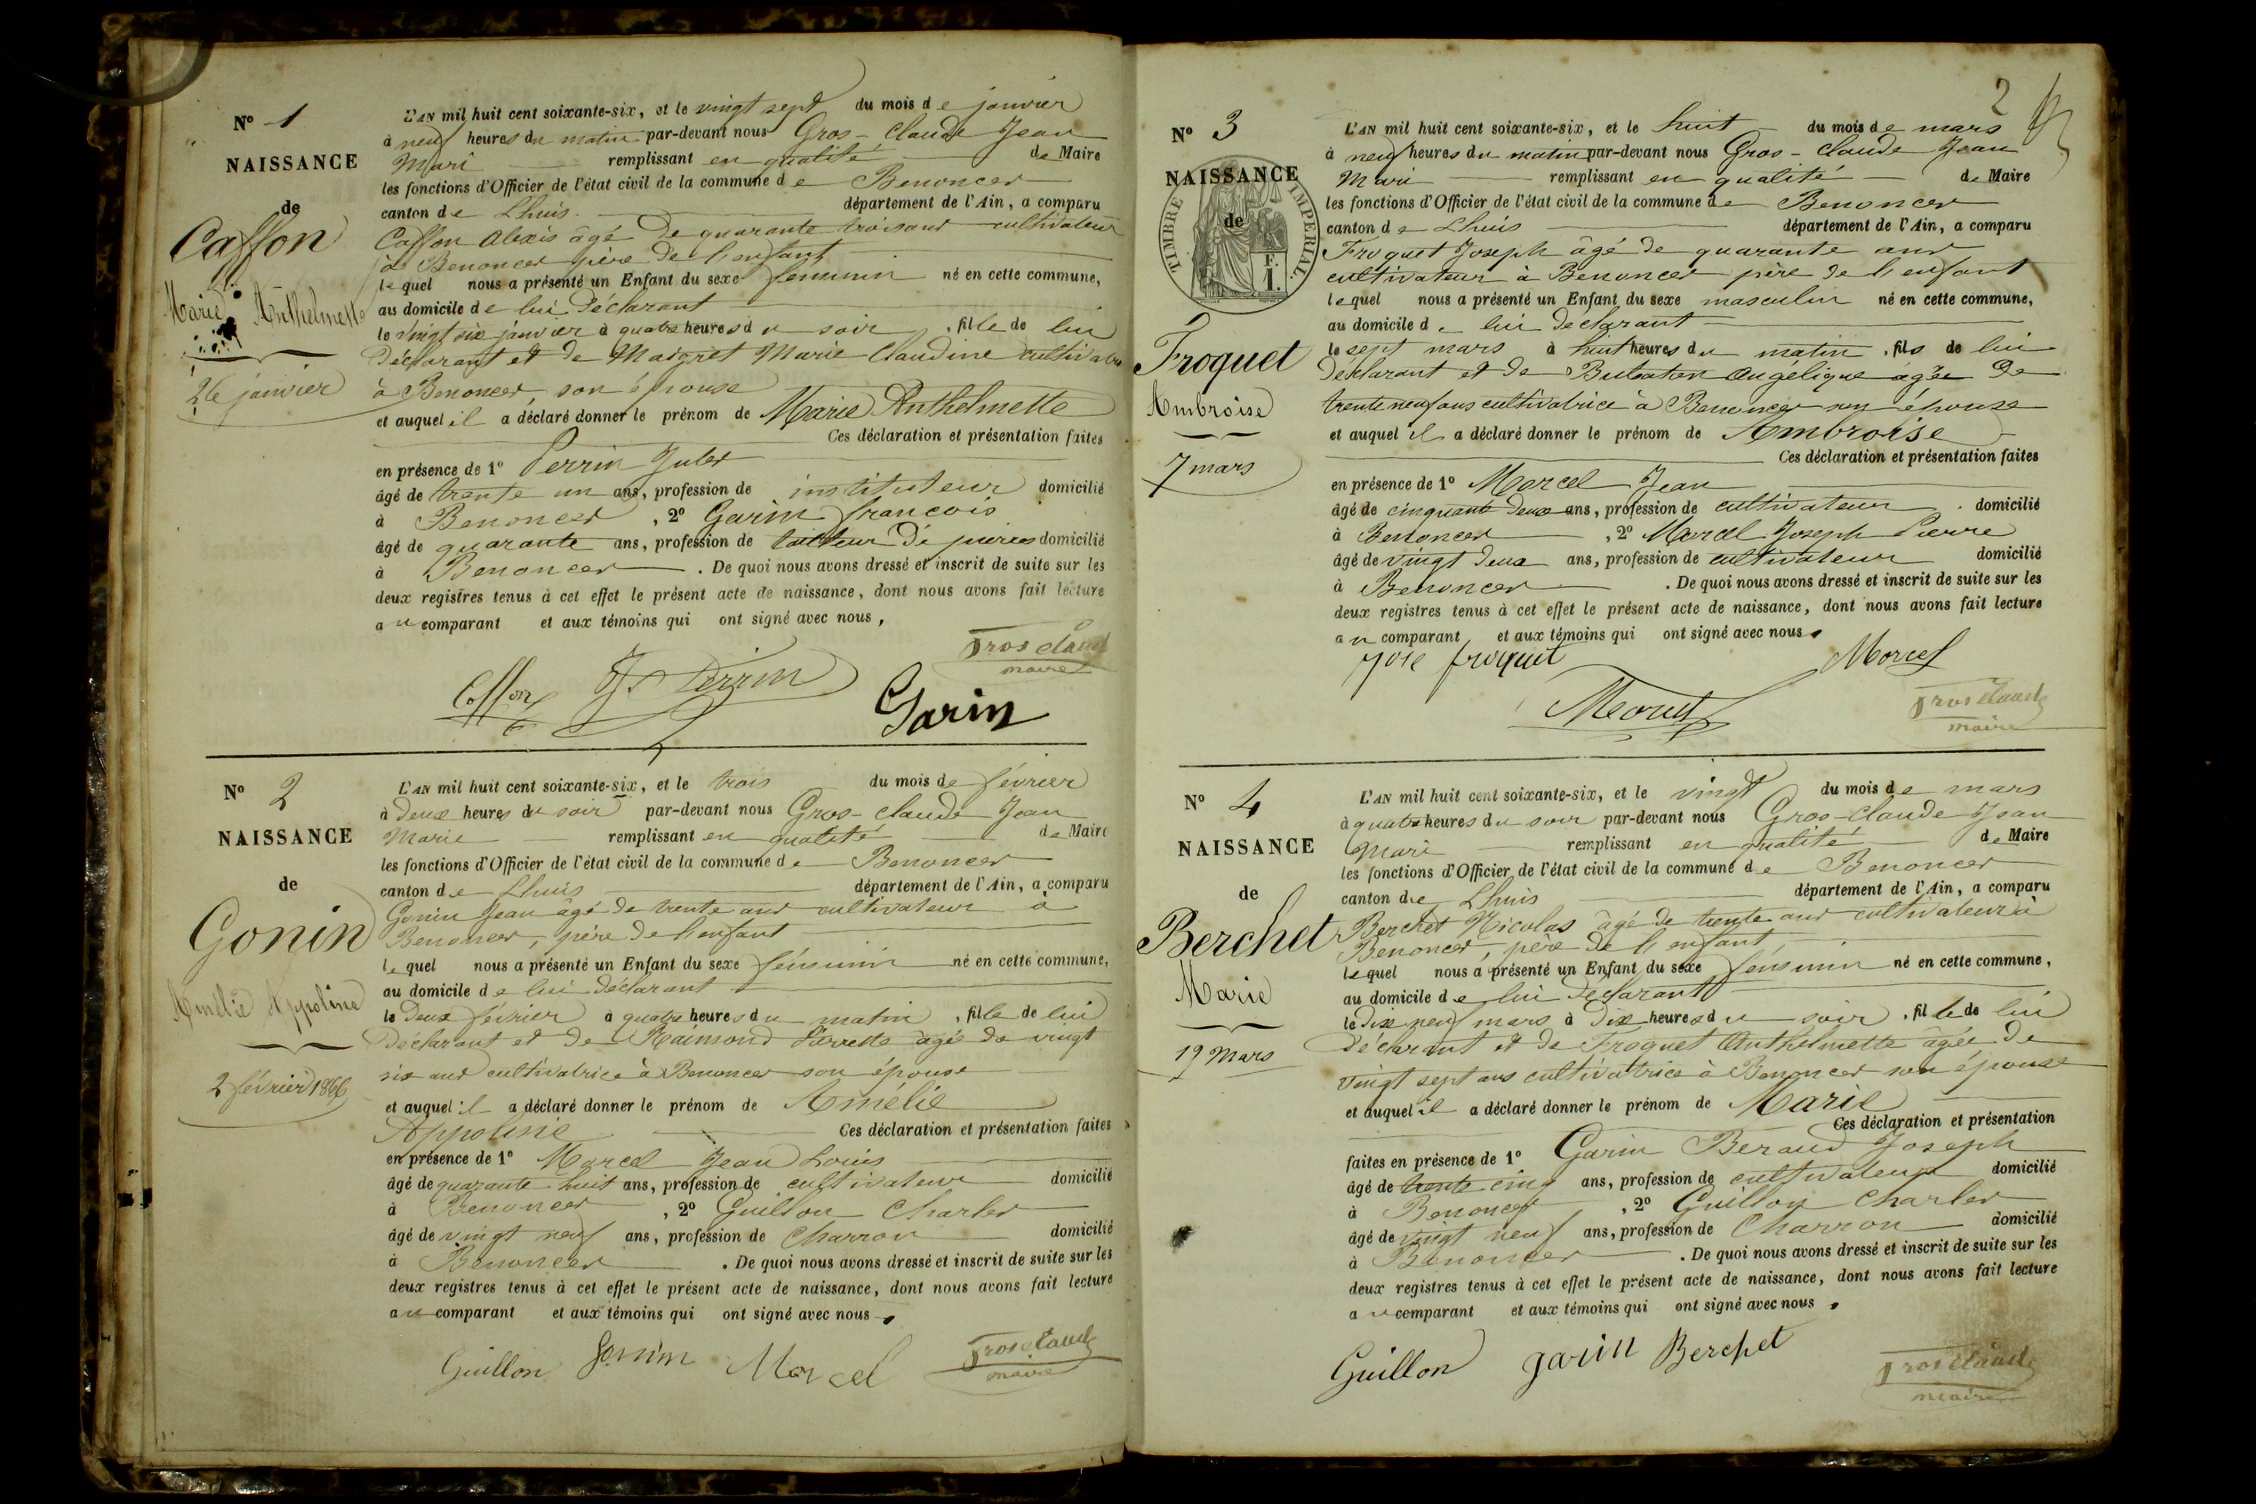 N° 1
NAISSANCE
de
Caffon
Marie Anthelmette
26 janvier
L'AN mil huit cent soixante-six, et le vingt sept du mois de janvier
à neuf heures du matin par-devant nous Gros-Claude Jean
Mari remplissant en qualité de Maire
les fonctions d'Officier de l'état civil de la commune de Benonces
canton de Lhuis département de l'Ain, a comparu
Caffon Alexis âgé de quarante trois ans cultivateur
à Benonces père de l'enfant
lequel nous a présenté un Enfant du sexe féminin né en cette commune,
au domicile de lui déclarant
le vingt six janvier à quatre heures du soir, fille de lui
déclarant et de Maigret Marie Claudine cultivatrice
à Benonces, son épouse
et auquel il a déclaré donner le prénom de Marie Anthelmette
Ces déclaration et présentation faites
en présence de 1° Perrin Jules
âgé de trente un ans, profession de instituteur domicilié
à Benonces, 2° Garin françois
âgé de quarante ans, profession de tailleur de pierres domicilié
à Benonces. De quoi nous avons dressé et inscrit de suite sur les
deux registres tenus à cet effet le présent acte de naissance, dont nous avons fait lecture
au comparant et aux témoins qui ont signé avec nous,
Grosclaude
maire
Caffon J. Perrin Garin
N° 2
NAISSANCE
de
Gonin
Amélie Appoline
2 février 1866
L'AN mil huit cent soixante-six, et le trois du mois de février
à deux heures du soir par-devant nous Gros-claude Jean
Marie remplissant en qualité de Maire
les fonctions d'Officier de l'état civil de la commune de Benonces
canton de Lhuis département de l'Ain, a comparu
Gonin Jean âgé de trente ans cultivateur à
Benonces, père de l'enfant
lequel nous a présenté un Enfant du sexe féminin né en cette commune,
au domicile de lui déclarant
le deux février à quatre heures du matin, fille de lui
déclarant et de Raimond âgée de vingt
six ans cultivatrice à Benonces son épouse
et auquel il a déclaré donner le prénom de Amélie
Appoline Ces déclaration et présentation faites
en présence de 1° Marcel Jean Louis
âgé de quarante huit ans, profession de cultivateur domicilié
à Benonces, 2° Guillon Charles
âgé de vingt neuf ans, profession de Charron domicilié
à Benonces. De quoi nous avons dressé et inscrit de suite sur les
deux registres tenus à cet effet le présent acte de naissance, dont nous avons fait lecture
au comparant et aux témoins qui ont signé avec nous,
Guillon Gonin Marcel Grosclaude
maire
2
N° 3
NAISSANCE
de
TIMBRE IMPERIAL
F.
1.
Froquet
Ambroise
7 mars
L'AN mil huit cent soixante-six, et le huit du mois de mars
à neuf heures du matin par-devant nous Gros-claude Jean
Mari remplissant en qualité de Maire
les fonctions d'Officier de l'état civil de la commune de Benonces
canton de Lhuis département de l'Ain, a comparu
Froquet Joseph âgé de quarante ans
cultivateur à Benonces père de l'enfant
lequel nous a présenté un Enfant du sexe masculin né en cette commune,
au domicile de lui déclarant
le sept mars à huit heures du matin, fils de lui
déclarant et de Angélique âgée de
trente neuf ans cultivatrice à Benonces son épouse
et auquel il a déclaré donner le prénom de Ambroise
Ces déclaration et présentation faites
en présence de 1° Marcel Jean
âgé de cinquante deux ans, profession de cultivateur domicilié
à Benonces, 2° Marcel Joseph Pierre
âgé de vingt deux ans, profession de cultivateur domicilié
à Benonces. De quoi nous avons dressé et inscrit de suite sur les
deux registres tenus à cet effet le présent acte de naissance, dont nous avons fait lecture
au comparant et aux témoins qui ont signé avec nous,
froquet Marcel
Grosclaude
maire
N° 4
NAISSANCE
de
Berchet
Marie
19 Mars
L'AN mil huit cent soixante-six, et le vingt du mois de mars
à quatre heures du soir par-devant nous Gros-Claude Jean
Mari remplissant en qualité de Maire
les fonctions d'Officier de l'état civil de la commune de Benonces
canton de Lhuis département de l'Ain, a comparu
Berchet Nicolas âgé de trente ans cultivateur à
Benonces, père de l'enfant,
lequel nous a présenté un Enfant du sexe féminin né en cette commune,
au domicile de lui déclarant
le dix neuf mars à dix heures du soir, fille de lui
déclarant et de Froquet Anthelmette âgée de
vingt sept ans cultivatrice à Benonces son épouse
et auquel il a déclaré donner le prénom de Marie
Ces déclaration et présentation
faites en présence de 1° Garin Beraud Joseph
âgé de trente cinq ans, profession de cultivateur domicilié
à Benonces, 2° Guillon Charles
âgé de vingt neuf ans, profession de Charron domicilié
à Benonces. De quoi nous avons dressé et inscrit de suite sur les
deux registres tenus à cet effet le présent acte de naissance, dont nous avons fait lecture
au comparant et aux témoins qui ont signé avec nous,
Guillon garin Berchet Grosclaude
maire